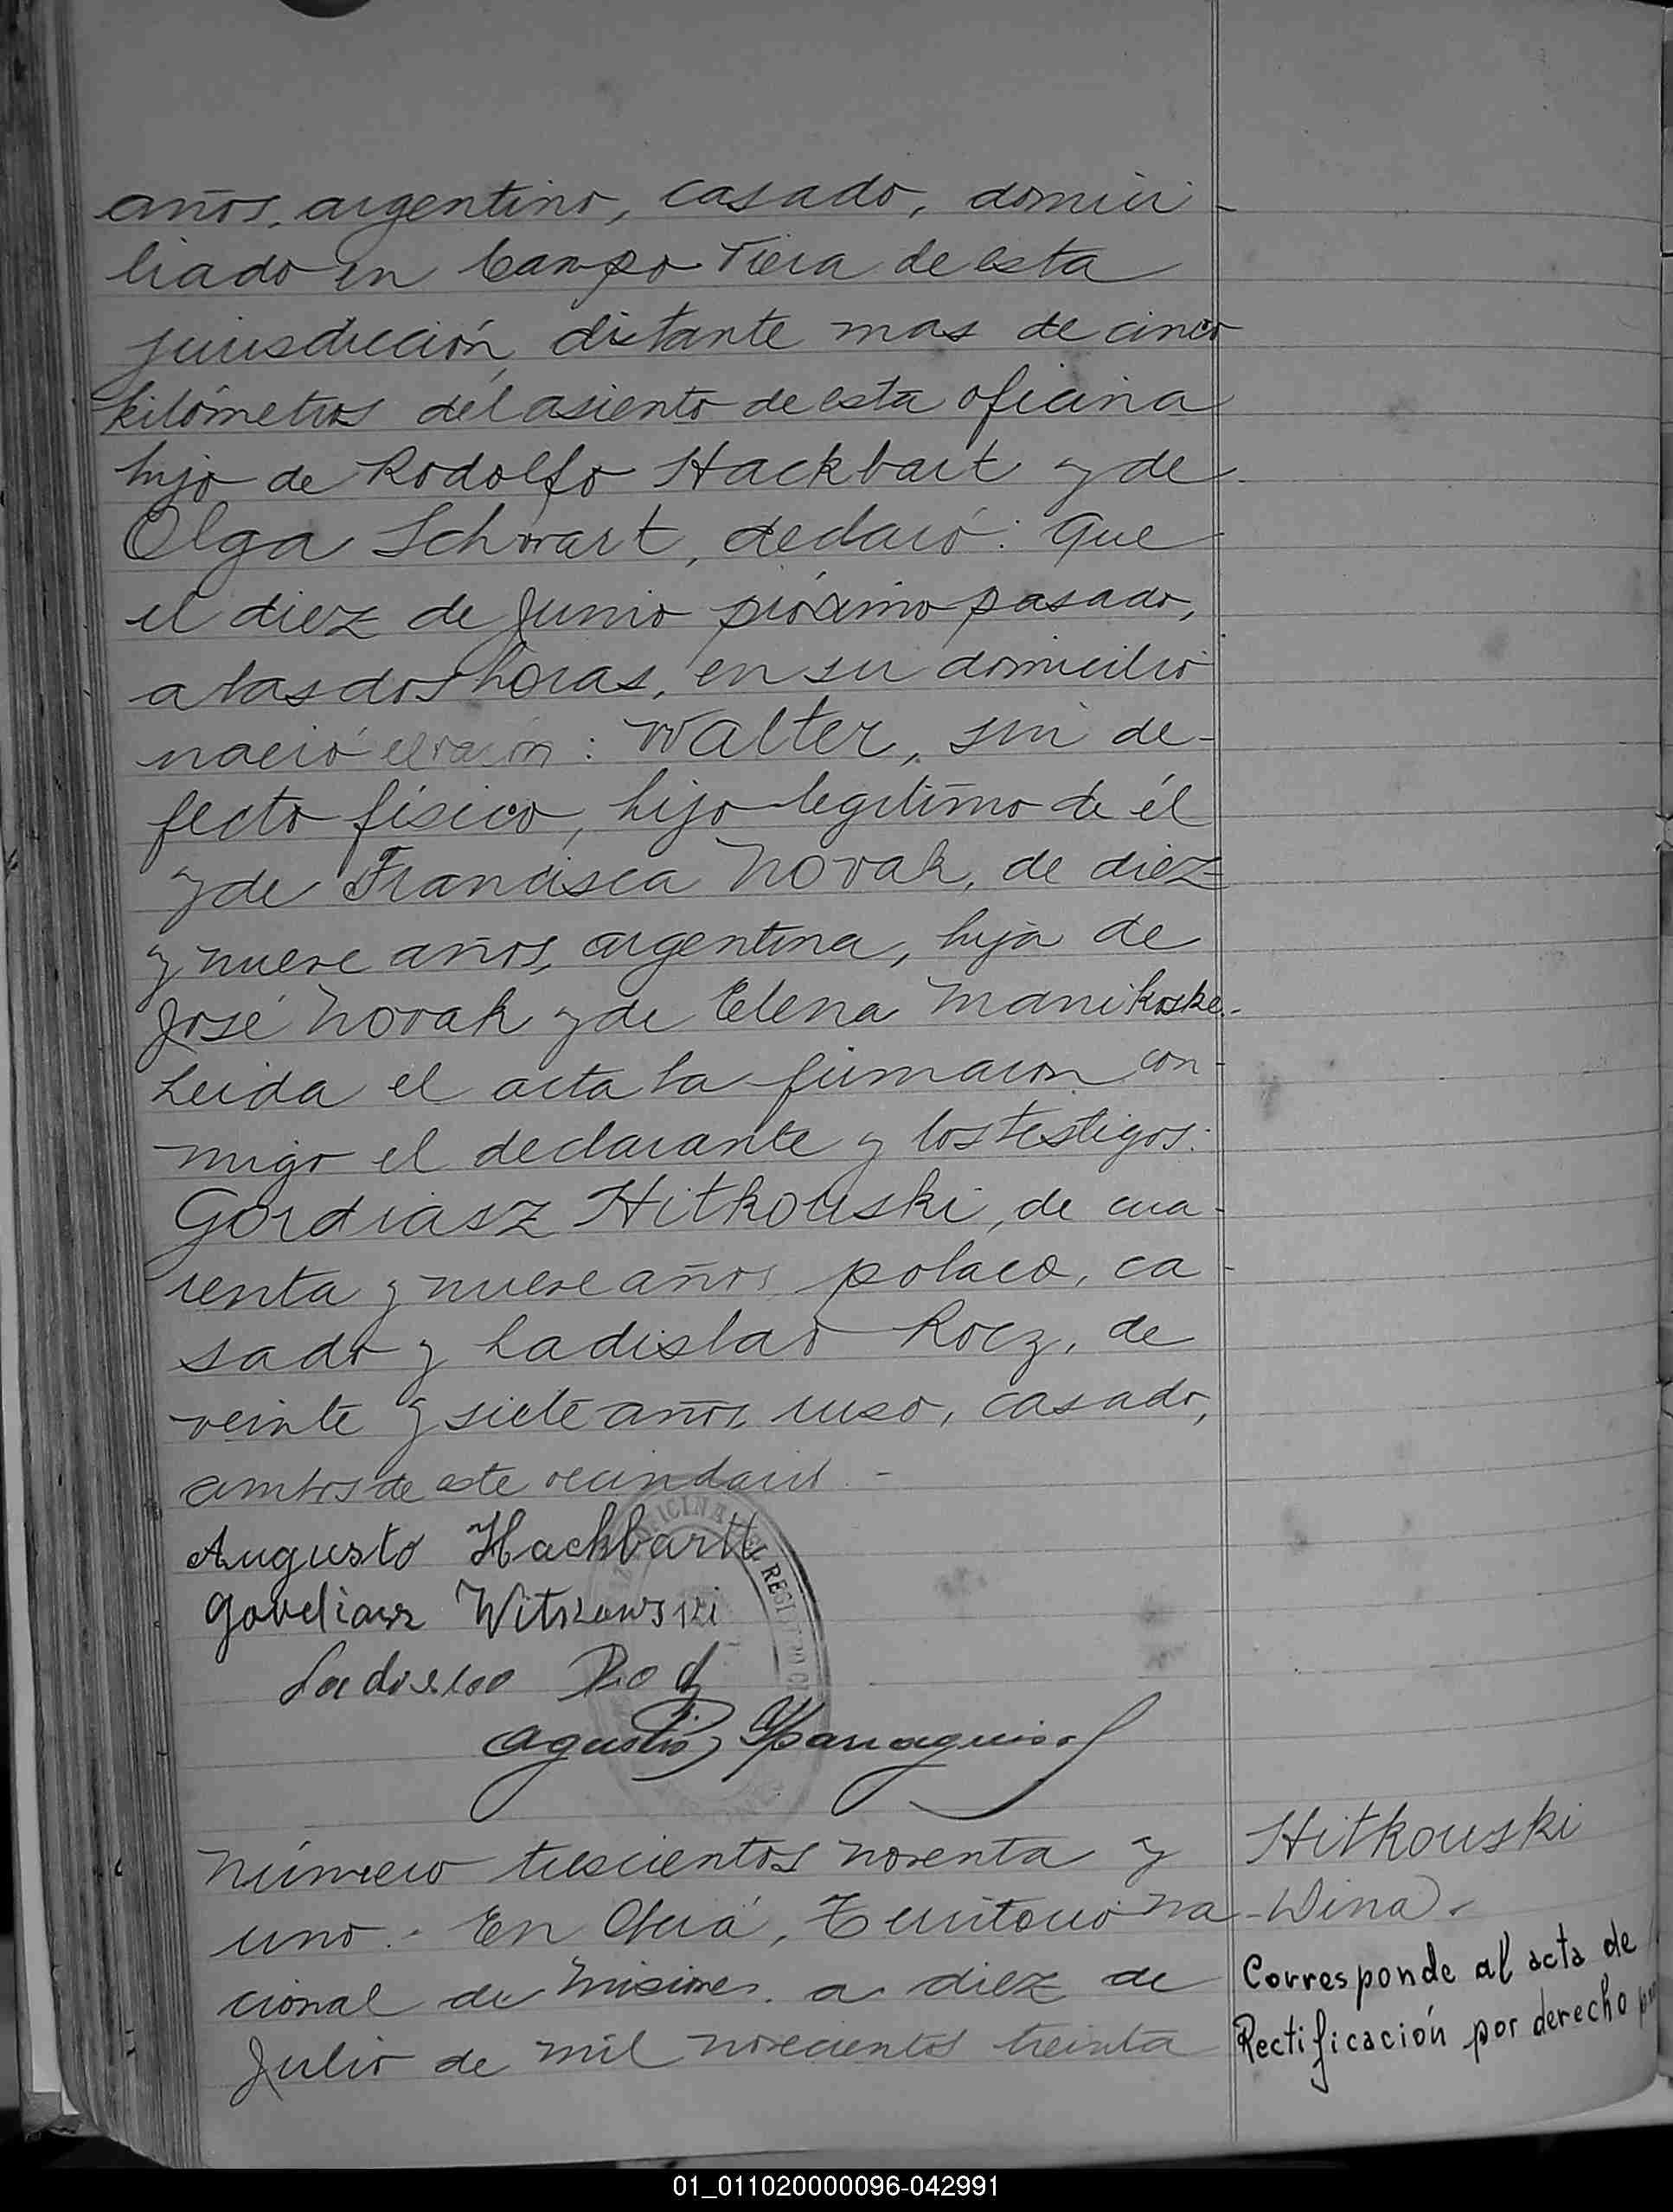 años, argentino, casado, domici-
liado en Campo Viera de esta
jurisdicción, distante mas de cinco
kilómetros del asiento de esta oficina
hijo de Rodolfo Hackbart y de
Olga Schwart, declaró: que
el diez de Junio próximo pasado,
a las dos horas, en su domicilio
nació el varón: Walter, sin de-
fecto físico, hijo legítimo de él
y de Francisca Novak, de diez
y nueve años, argentina, hija de
José Novak y de Elena Manikoske.-
Leida el acta la firmaron con-
migo el declarante y los testigos:
Gordiasz Hitkouski, de cua-
renta y nueve años, polaco, ca-
sado y Ladislao Rocz, de
veinte y siete años, ruso, casado,
ambos de este vecindario.-
Augusto Hackbartt
Gordiasz Witkowski
Ladislao
Agustin
OFICINA DEL REGISTRO CI
Número trescientos noventa y
uno.- En Oberá, Territorio Na-
cional de Misiones, a diez de
Julio de mil novecientos treinta
Hitkouski
Wina.
Corresponde al acta de
Rectificación por derecho
01_011020000096-042991